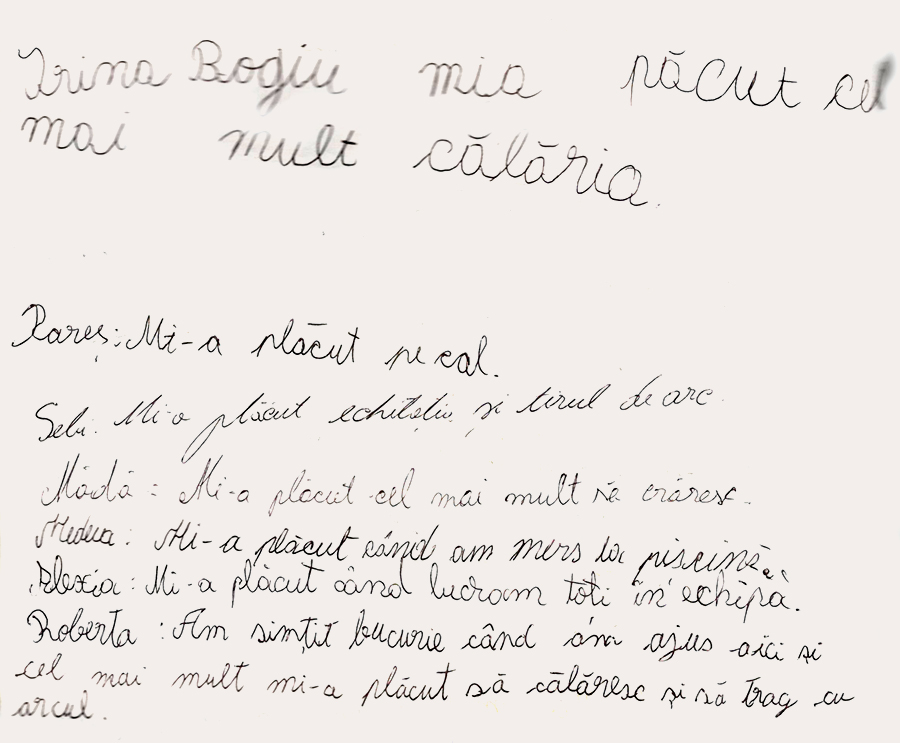 Irina Bogiu mia păcut cel
mai mult călăria.
Rareș: Mi-a plăcut pe cal.
Sebi: Mi-a plăcut echitația și tirul de arc
Mădă: Mi-a plăcut cel mai mult să
Medeea: Mi-a plăcut când am mers la piscină.
Alexia: Mi-a plăcut când lucram toți în echipă.
Roberta: Am simțit bucurie când am ajus aici și
cel mai mult mi-a plăcut să călăresc și să trag cu
arcul.